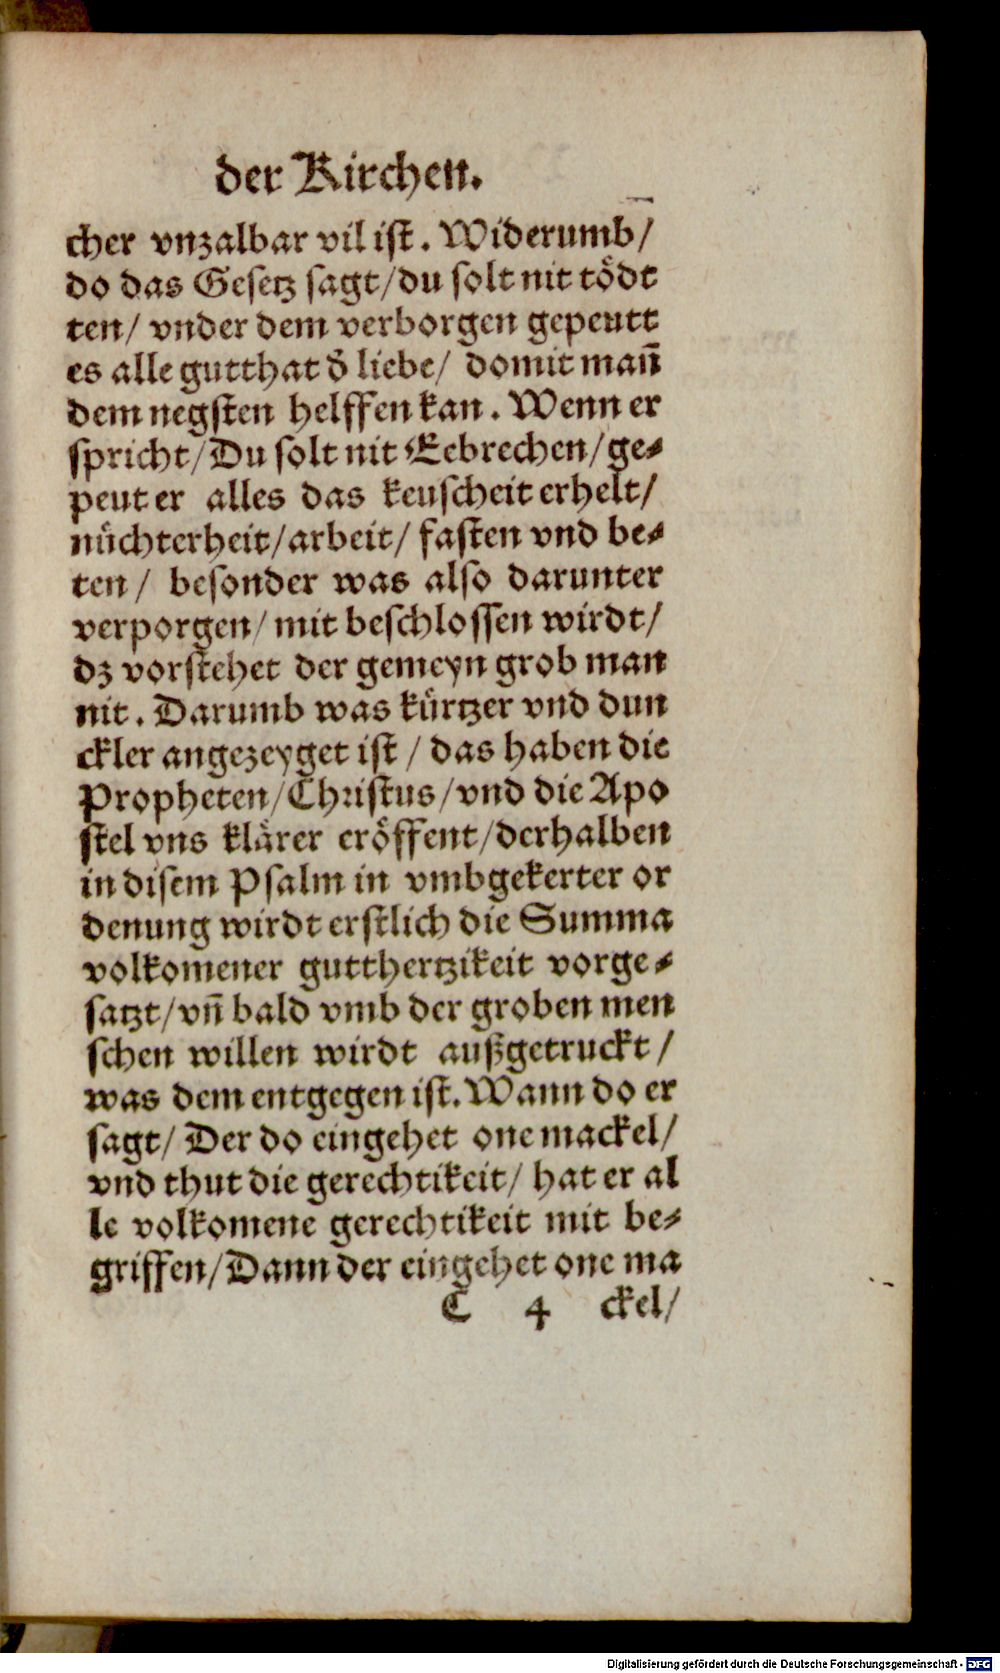 der Kirchen.
cher vnzalbar vil ist. Widerumb/
do das Gesetz sagt/du solt nit tödt
ten/ vnder dem verborgen gepeutt
es alle gutthat d̄ liebe/ domit man̄
dem negsten helffen kan. Wenn er
spricht/Du solt nit Eebrechen/ge⸗
peut er alles das keuscheit erhelt/
nüchterheit/arbeit/ fasten vnd be⸗
ten/ besonder was also darunter
verporgen/ mit beschlossen wirdt/
dz vorstehet der gemeyn grob man
nit. Darumb was kürtzer vnd dun
ckler angezeyget ist / das haben die
Propheten/Christus/vnd die Apo
stel vns klärer eröffent/derhalben
in disem Psalm in vmbgekerter or
denung wirdt erstlich die Summa
volkomener gutthertzikeit vorge⸗
satzt/vn̄ bald vmb der groben men
schen willen wirdt außgetruckt /
was dem entgegen ist. Wann do er
sagt/ Der do eingehet one mackel/
vnd thut die gerechtikeit/ hat er al
le volkomene gerechtikeit mit be⸗
griffen/Dann der eingehet one ma
C 4 ckel/
Digitalisierung gefördert durch die Deutsche Forschungsgemeinschaft - DFG